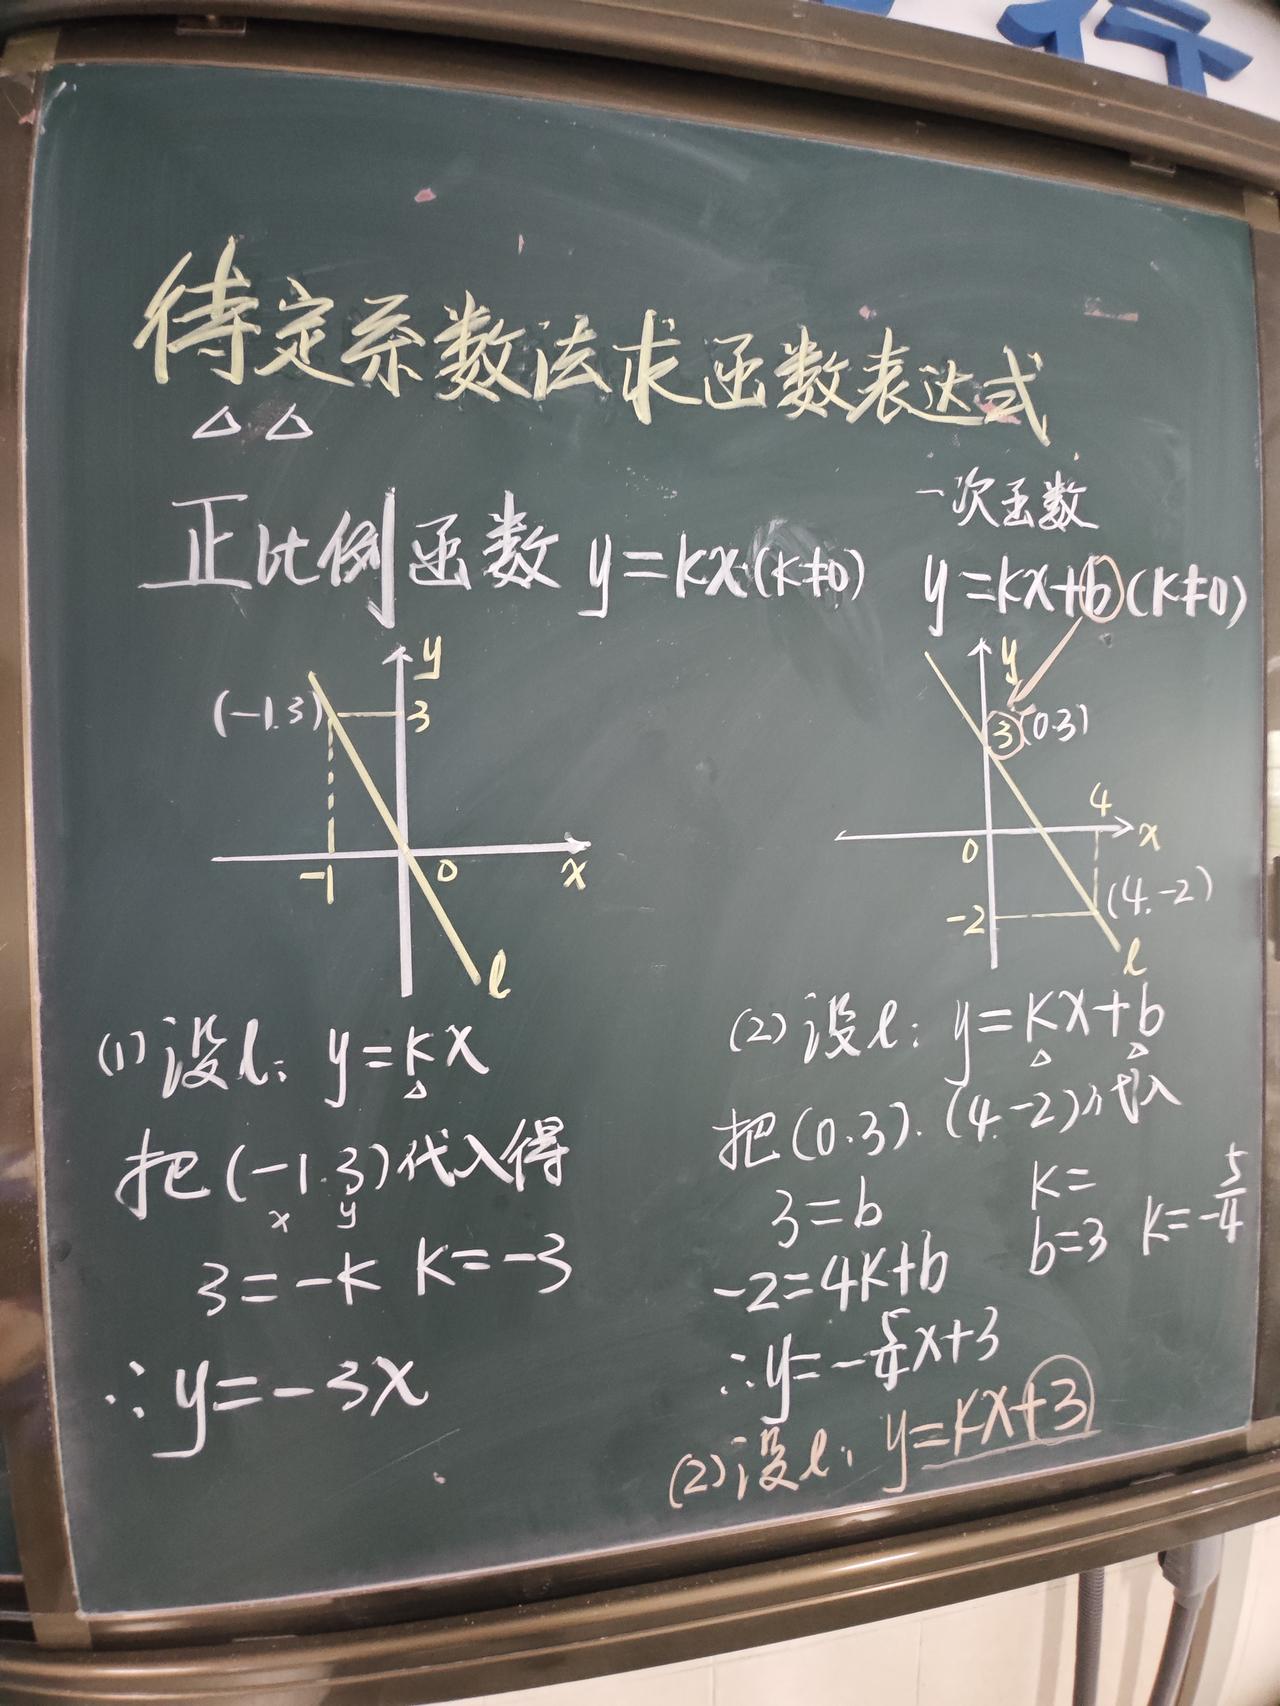 行
待定系数法求函数表达式
△ △
正比例函数 y=kx(k≠0)
y
(-1.3)
3
-1
0
x
l
(1)设l: y=kx
△
把(-1.3)代入得
x y
3=-k k=-3
∴y=-3x
一次函数
y=kx+b(k≠0)
y
3 (0.3)
4
x
0
-2
(4.-2)
l
(2)设l: y=kx+b
△ △
把(0.3).(4.-2)代入
3=b k=
-2=4k+b b=3 k=-5/4
∴y=-5/4x+3
(2)设l: y=kx+3